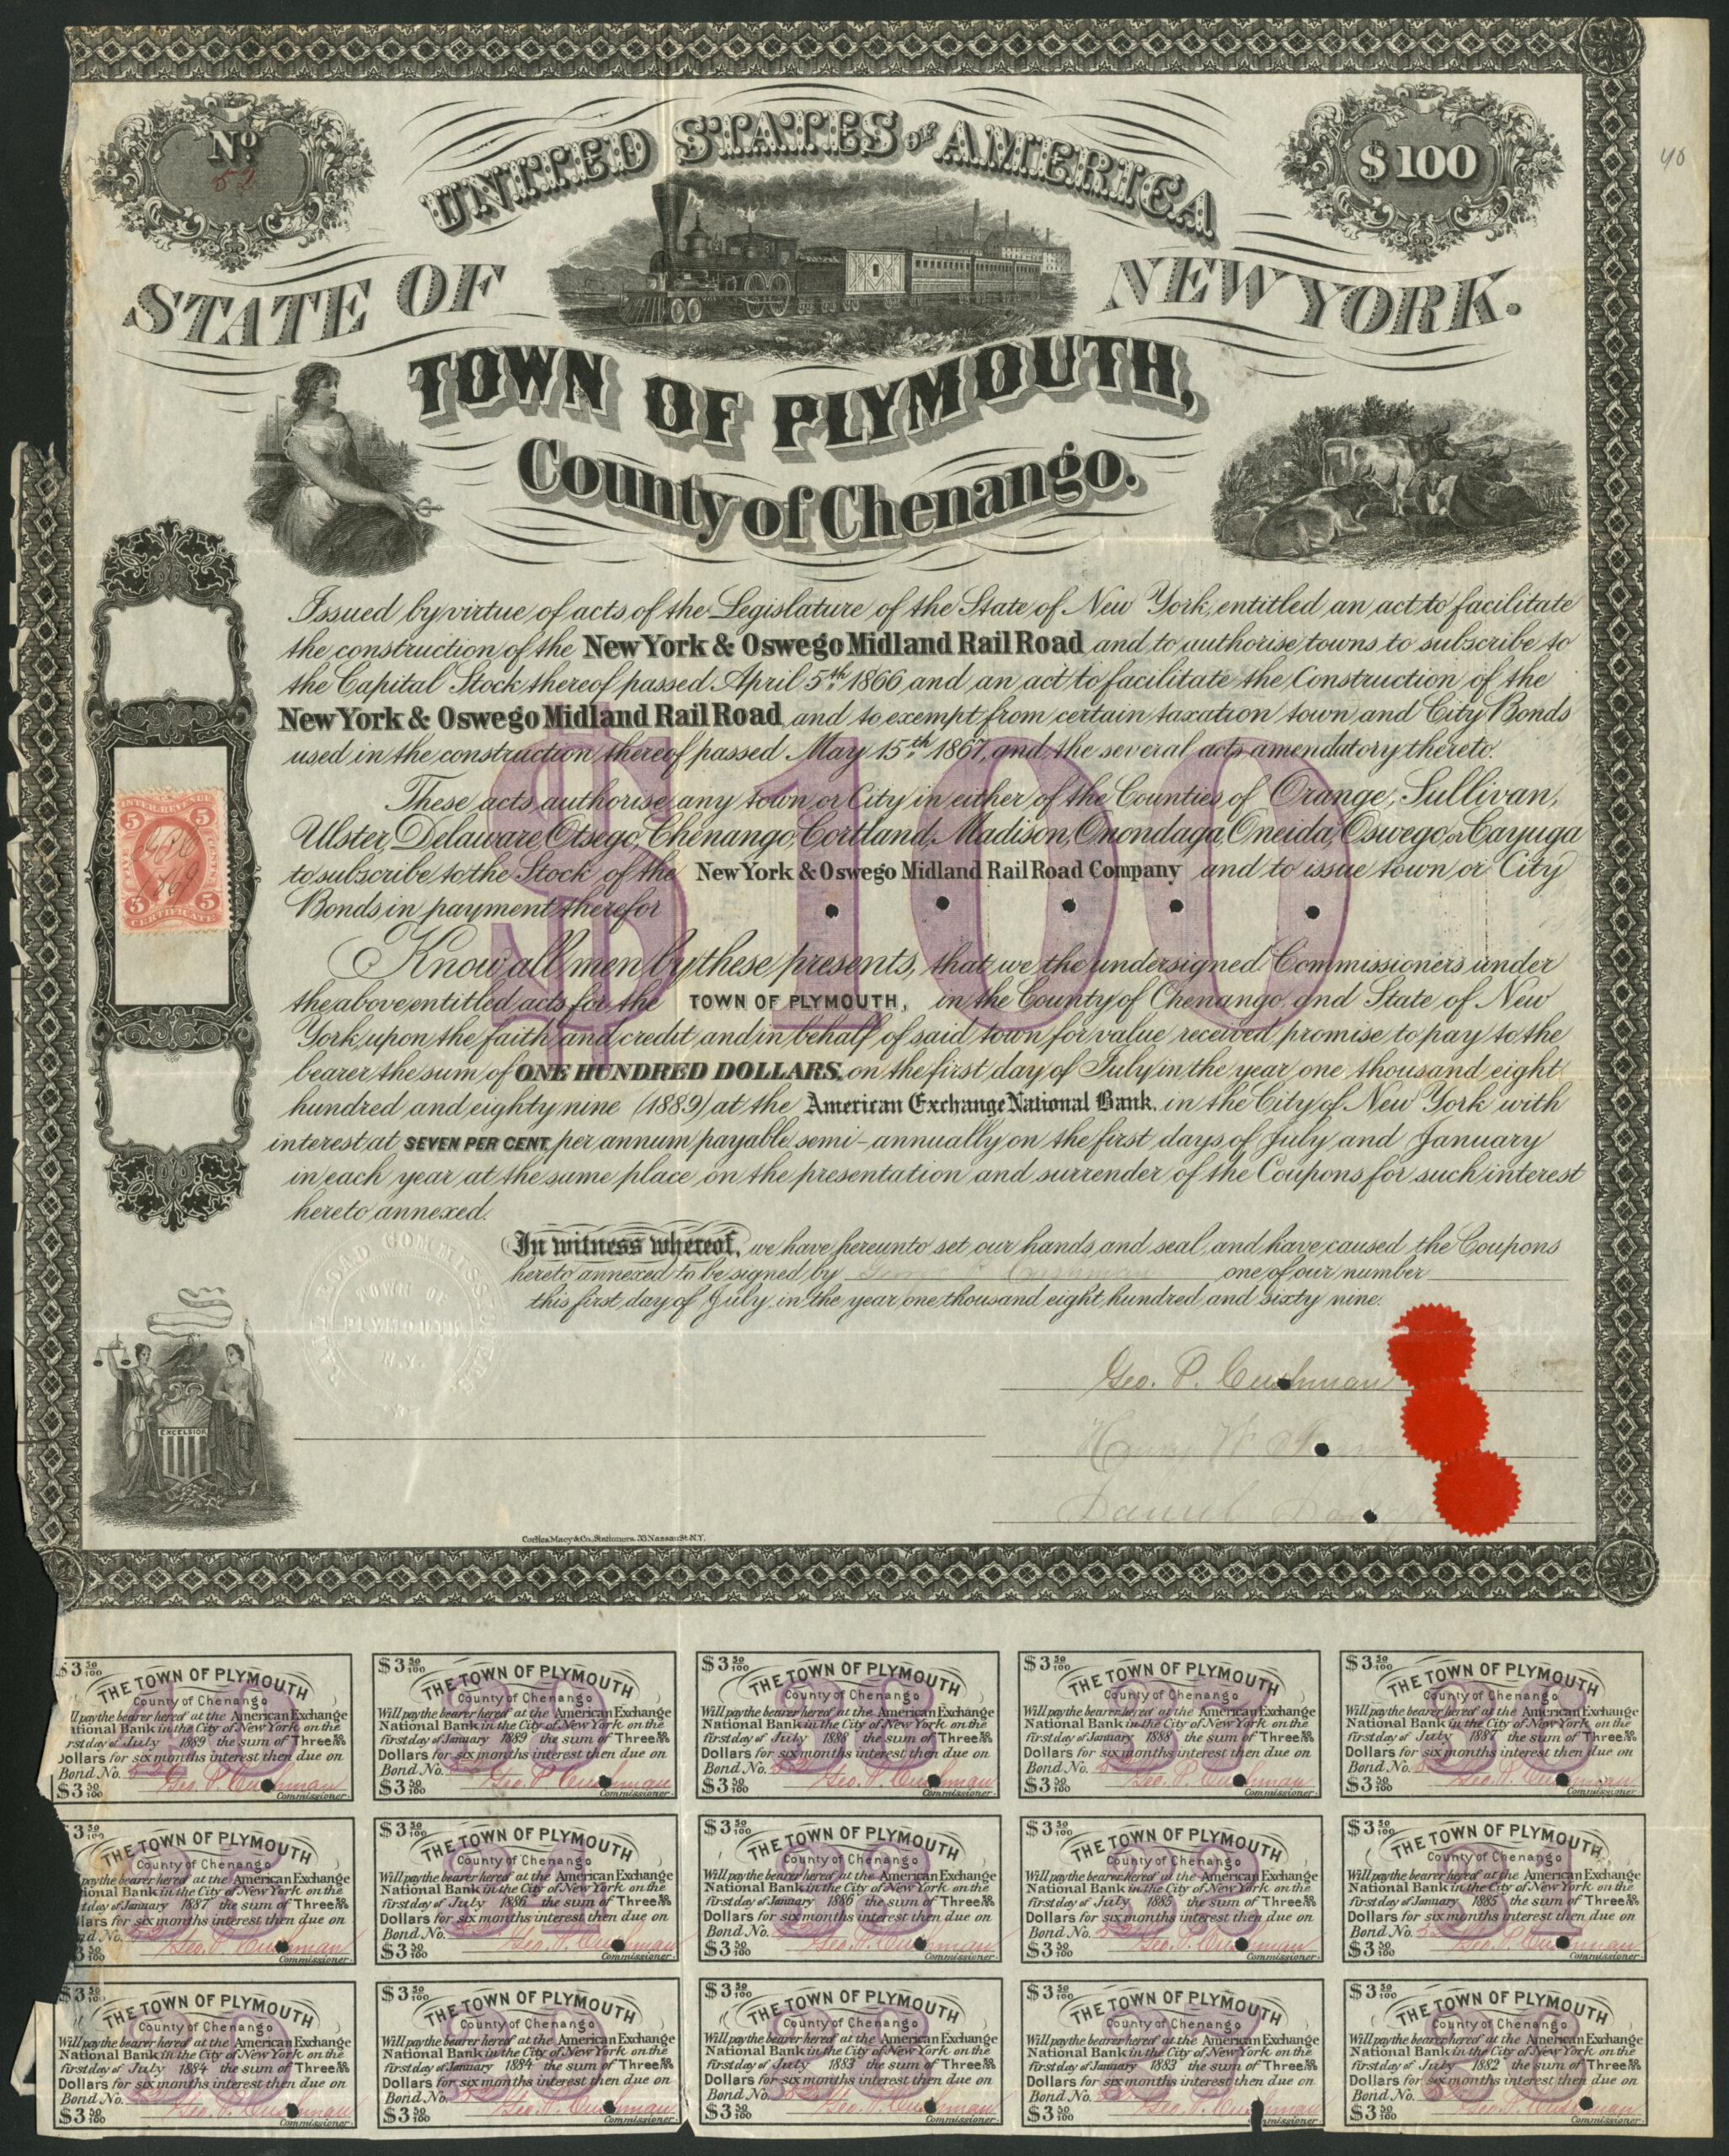 No
52
UNITED STATES OF AMERICA
$100
40
STATE OF NEW YORK.
TOWN OF PLYMOUTH,
County of Chenango.
Issued by virtue of acts of the Legislature of the State of New York, entitled an act to facilitate
the construction of the New York & Oswego Midland Rail Road and to authorise towns to subscribe to
the Capital Stock thereof passed April 5th 1866 and an act to facilitate the Construction of the
New York & Oswego Midland Rail Road and to exempt from certain taxation town and City Bonds
used in the construction thereof passed May 15th 1867, and the several acts amendatory thereto.
These acts authorise any town or City in either of the Counties of Orange, Sullivan,
Ulster, Delaware, Otsego, Chenango, Cortland, Madison, Onondaga, Oneida, Oswego, or Cayuga
to subscribe to the Stock of the New York & Oswego Midland Rail Road Company and to issue town or City
Bonds in payment therefor
$100
INTER. REVENUE
5 5
FIVE CENTS
1869
5 5
CERTIFICATE
Know all men by these presents, that we the undersigned Commissioners under
the above entitled acts for the TOWN OF PLYMOUTH, in the County of Chenango, and State of New
York, upon the faith and credit and in behalf of said town for value received promise to pay to the
bearer the sum of ONE HUNDRED DOLLARS, on the first day of July in the year one thousand eight
hundred and eighty nine (1889) at the American Exchange National Bank. in the City of New York with
interest at SEVEN PER CENT, per annum payable semi-annually on the first days of July and January
in each year at the same place on the presentation and surrender of the Coupons for such interest
hereto annexed.
In witness whereof, we have hereunto set our hands and seal, and have caused the Coupons
hereto annexed to be signed by George P. Cushman one of our number
this first day of July in the year one thousand eight hundred and sixty nine.
RAIL ROAD COMMISSIONERS
TOWN OF
PLYMOUTH
N.Y.
EXCELSIOR
Geo. P. Cushman
Henry W.
Daniel
Corlies, Macy & Co., Stationers. 33 Nassau St. N.Y.
$3 50/100
THE TOWN OF PLYMOUTH
County of Chenango
ll pay the bearer hereof at the American Exchange
ational Bank in the City of New York on the
rst day of July 1889 the sum of Three 50/100
Dollars for six months interest then due on
Bond No. 52 Geo. P. Cushman
$3 50/100 Commissioner.
$3 50/100
THE TOWN OF PLYMOUTH
County of Chenango
Will pay the bearer hereof at the American Exchange
National Bank in the City of New York on the
first day of January 1889 the sum of Three 50/100
Dollars for six months interest then due on
Bond No. 52 Geo. P. Cushman
$3 50/100 Commissioner.
$3 50/100
THE TOWN OF PLYMOUTH
County of Chenango
Will pay the bearer hereof at the American Exchange
National Bank in the City of New York on the
first day of July 1888 the sum of Three 50/100
Dollars for six months interest then due on
Bond No. 52 Geo. P. Cushman
$3 50/100 Commissioner.
$3 50/100
THE TOWN OF PLYMOUTH
County of Chenango
Will pay the bearer hereof at the American Exchange
National Bank in the City of New York on the
first day of January 1888 the sum of Three 50/100
Dollars for six months interest then due on
Bond No. 52 Geo. P. Cushman
$3 50/100 Commissioner.
$3 50/100
THE TOWN OF PLYMOUTH
County of Chenango
Will pay the bearer hereof at the American Exchange
National Bank in the City of New York on the
first day of July 1887 the sum of Three 50/100
Dollars for six months interest then due on
Bond No. 52 Geo. P. Cushman
$3 50/100 Commissioner.
3 50/100
THE TOWN OF PLYMOUTH
County of Chenango
pay the bearer hereof at the American Exchange
tional Bank in the City of New York on the
t day of January 1887 the sum of Three 50/100
llars for six months interest then due on
nd No. 52 Geo. P. Cushman
3 50/100 Commissioner.
$3 50/100
THE TOWN OF PLYMOUTH
County of Chenango
Will pay the bearer hereof at the American Exchange
National Bank in the City of New York on the
first day of July 1886 the sum of Three 50/100
Dollars for six months interest then due on
Bond No. 52 Geo. P. Cushman
$3 50/100 Commissioner.
$3 50/100
THE TOWN OF PLYMOUTH
County of Chenango
Will pay the bearer hereof at the American Exchange
National Bank in the City of New York on the
first day of January 1886 the sum of Three 50/100
Dollars for six months interest then due on
Bond No. 52 Geo. P. Cushman
$3 50/100 Commissioner.
$3 50/100
THE TOWN OF PLYMOUTH
County of Chenango
Will pay the bearer hereof at the American Exchange
National Bank in the City of New York on the
first day of July 1885 the sum of Three 50/100
Dollars for six months interest then due on
Bond No. 52 Geo. P. Cushman
$3 50/100 Commissioner.
$3 50/100
THE TOWN OF PLYMOUTH
County of Chenango
Will pay the bearer hereof at the American Exchange
National Bank in the City of New York on the
first day of January 1885 the sum of Three 50/100
Dollars for six months interest then due on
Bond No. 52 Geo. P. Cushman
$3 50/100 Commissioner.
$3 50/100
THE TOWN OF PLYMOUTH
County of Chenango
Will pay the bearer hereof at the American Exchange
National Bank in the City of New York on the
first day of July 1884 the sum of Three 50/100
Dollars for six months interest then due on
Bond No. 52 Geo. P. Cushman
$3 50/100 Commissioner.
$3 50/100
THE TOWN OF PLYMOUTH
County of Chenango
Will pay the bearer hereof at the American Exchange
National Bank in the City of New York on the
first day of January 1884 the sum of Three 50/100
Dollars for six months interest then due on
Bond No. 52 Geo. P. Cushman
$3 50/100 Commissioner.
$3 50/100
THE TOWN OF PLYMOUTH
County of Chenango
Will pay the bearer hereof at the American Exchange
National Bank in the City of New York on the
first day of July 1883 the sum of Three 50/100
Dollars for six months interest then due on
Bond No. 52 Geo. P. Cushman
$3 50/100 Commissioner.
$3 50/100
THE TOWN OF PLYMOUTH
County of Chenango
Will pay the bearer hereof at the American Exchange
National Bank in the City of New York on the
first day of January 1883 the sum of Three 50/100
Dollars for six months interest then due on
Bond No. 52 Geo. P. Cushman
$3 50/100 mmissioner.
$3 50/100
THE TOWN OF PLYMOUTH
County of Chenango
Will pay the bearer hereof at the American Exchange
National Bank in the City of New York on the
first day of July 1882 the sum of Three 50/100
Dollars for six months interest then due on
Bond No. 52 Geo. P. Cushman
$3 50/100 Commissioner.